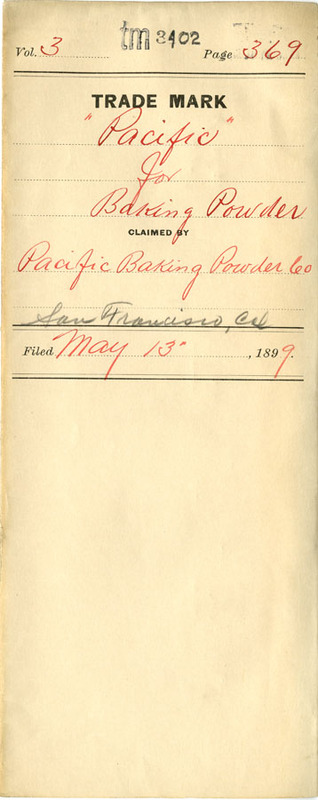 tm 3402
Vol. 3 Page 369
TRADE MARK
"Pacific"
for
Baking Powder
CLAIMED BY
Pacific Baking Powder Co
San Francisco, Cal
Filed May 13", 1899.